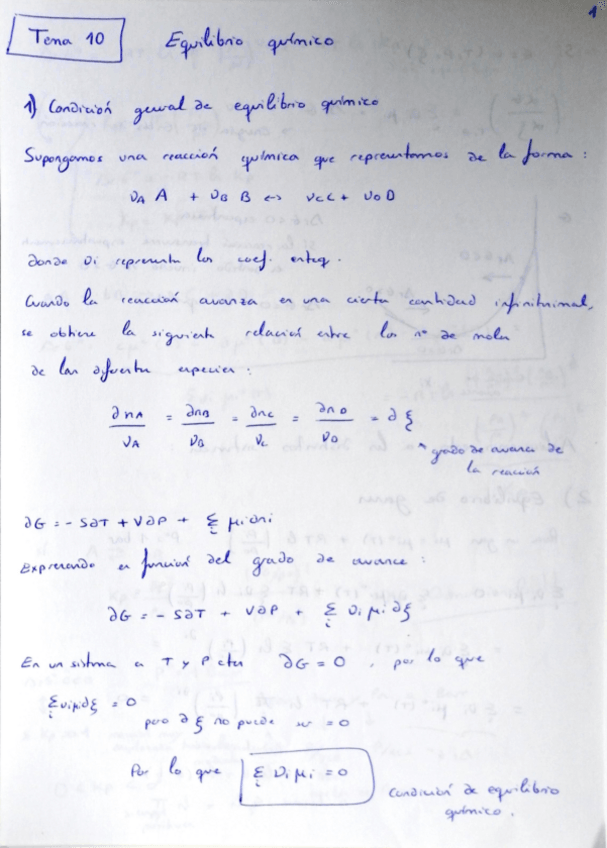 1
Tema 10
Equilibrio químico
1) Condición general de equilibrio químico
Supongamos una reacción química que representamos de la forma:
νA A + νB B ↔ νC C + νD D
donde νi representa los coef. esteq.
Cuando la reacción avanza en una cierta cantidad infinitesimal,
se obtiene la siguiente relación entre los nº de moles
de las diferentes especies:
∂nA/νA = ∂nB/νB = ∂nC/νC = ∂nD/νD = ∂ξ
* grado de avance de
la reacción
∂G = - S∂T + V∂P + Σi μi∂ni
Expresando en función del grado de avance:
∂G = - S∂T + V∂P + Σi νi μi ∂ξ
En un sistema a T y P ctes ∂G = 0, por lo que
Σi νi μi ∂ξ = 0
pero ∂ξ no puede ser = 0
Por lo que Σi νi μi = 0
Condición de equilibrio
químico.